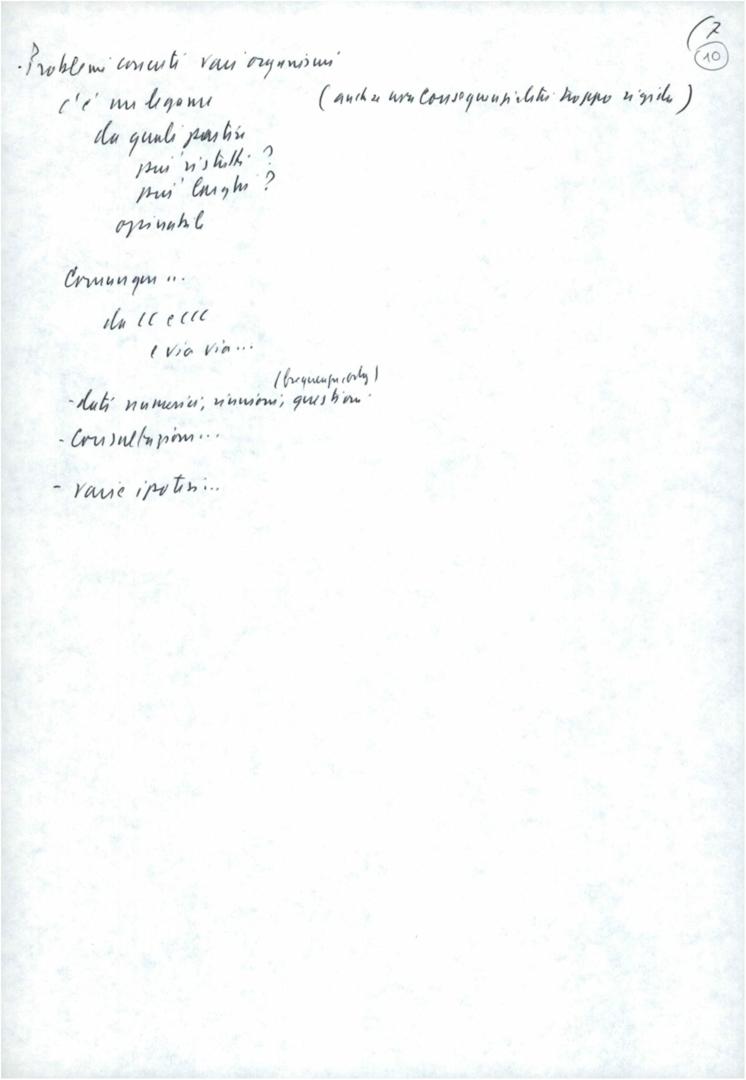 7
10
· Problemi concreti vari organismi
c'è un legame (anche una consequenzialità troppo rigida)
da quali partire
più ristretti ?
più larghi ?
opinabile
Comunque ...
da CC e CCC
e via via ...
(frequenza)
- dati numerici, riunioni, questioni
- Consultazioni ...
- varie ipotesi ...